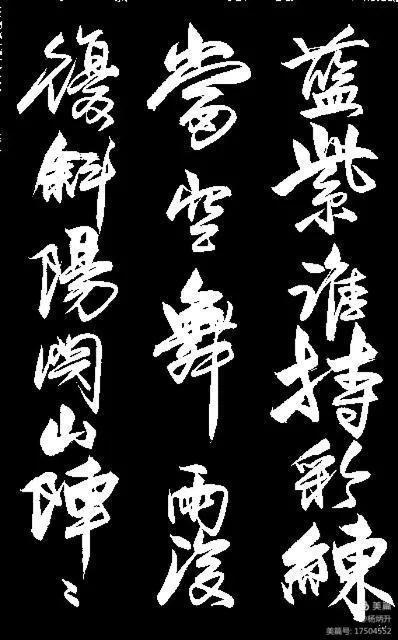 藍紫誰持彩練
當空舞雨後
復斜陽関山陣〻
美篇
@杨炳升
美篇号: 17504552